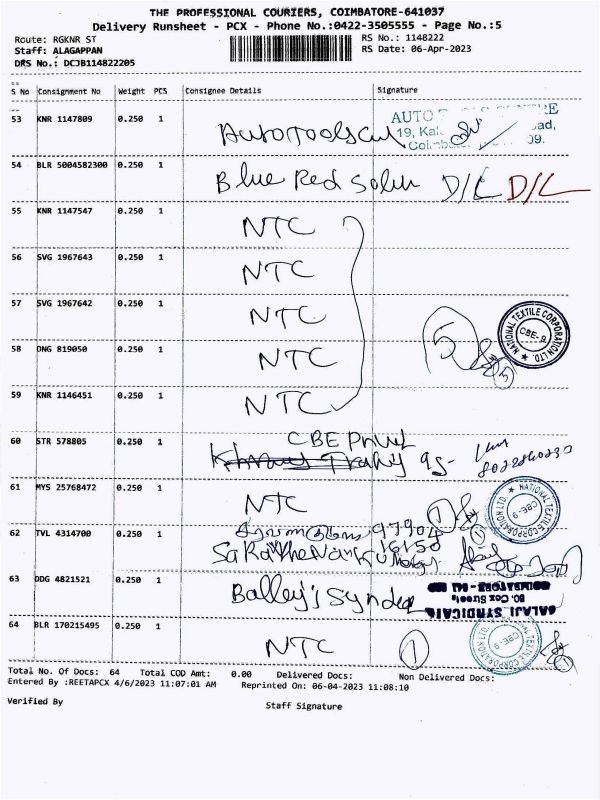 THE PROFESSIONAL COURIERS, COIMBATORE-641037
Delivery Runsheet - PCX - Phone No.:0422-3505555 - Page No.:5
Route: RGKNR ST
RS No.: 1148222
Staff: ALAGAPPAN
RS Date: 06-Apr-2023
DRS No.: DCJB114822205
S No Consignment No Weight PCS Consignee Details Signature
53 KNR 1147809 0.250 1
54 BLR 5004582300 0.250 1 Blue Red D/L D/L
55 KNR 1147547 0.250 1 NTC
56 SVG 1967643 0.250 1 NTC
57 SVG 1967642 0.250 1 NTC
NATIONAL TEXTILE CORPORATION LTD. CBE-9
5
5
58 ONG 819050 0.250 1 NTC
59 KNR 1146451 0.250 1 NTC
60 STR 578805 0.250 1 CBE
61 MYS 25768472 0.250 1 NTC 1
NATIONAL TEXTILE CORPORATION LTD. CBE-9
62 TVL 4314700 0.250 1
63 DDG 4821521 0.250 1
BALAJI SYNDICATE
80, Cox Street,
COIMBATORE - 641
64 BLR 170215495 0.250 1 NTC 1
CBE-9
Total No. Of Docs: 64 Total COD Amt: 0.00 Delivered Docs: Non Delivered Docs:
Entered By :REETAPCX 4/6/2023 11:07:01 AM Reprinted On: 06-04-2023 11:08:10
Verified By
Staff Signature